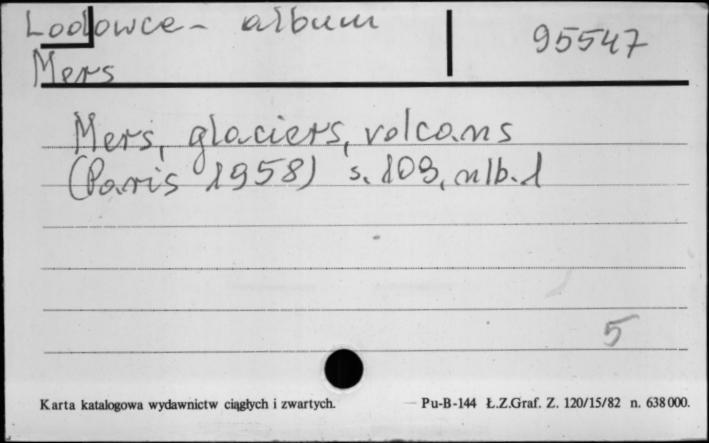 Lodowce - album
95547
Mers
Mers, glaciers, volcans
(Paris 1958) s. 109, nlb. 1
5
Karta katalogowa wydawnictw ciągłych i zwartych.
Pu-B-144 Ł.Z.Graf. Z. 120/15/82 n. 638000.